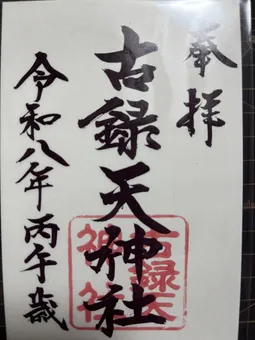 奉拝
古録天神社
令和八年 丙午歳
古録天
神社